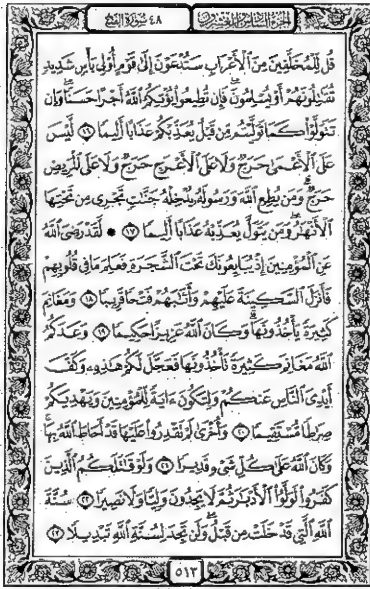 الجزء السادس والعشرون ٤٨ سورة الفتح
قُل لِّلْمُخَلَّفِينَ مِنَ ٱلْأَعْرَابِ سَتُدْعَوْنَ إِلَىٰ قَوْمٍ أُو۟لِى بَأْسٍ شَدِيدٍ
تُقَـٰتِلُونَهُمْ أَوْ يُسْلِمُونَ ۖ فَإِن تُطِيعُوا۟ يُؤْتِكُمُ ٱللَّهُ أَجْرًا حَسَنًا ۖ وَإِن
تَتَوَلَّوْا۟ كَمَا تَوَلَّيْتُم مِّن قَبْلُ يُعَذِّبْكُمْ عَذَابًا أَلِيمًا ١٦ لَّيْسَ
عَلَى ٱلْأَعْمَىٰ حَرَجٌ وَلَا عَلَى ٱلْأَعْرَجِ حَرَجٌ وَلَا عَلَى ٱلْمَرِيضِ
حَرَجٌ ۗ وَمَن يُطِعِ ٱللَّهَ وَرَسُولَهُۥ يُدْخِلْهُ جَنَّـٰتٍ تَجْرِى مِن تَحْتِهَا
ٱلْأَنْهَـٰرُ ۖ وَمَن يَتَوَلَّ يُعَذِّبْهُ عَذَابًا أَلِيمًا ١٧ ۞ لَّقَدْ رَضِىَ ٱللَّهُ
عَنِ ٱلْمُؤْمِنِينَ إِذْ يُبَايِعُونَكَ تَحْتَ ٱلشَّجَرَةِ فَعَلِمَ مَا فِى قُلُوبِهِمْ
فَأَنزَلَ ٱلسَّكِينَةَ عَلَيْهِمْ وَأَثَـٰبَهُمْ فَتْحًا قَرِيبًا ١٨ وَمَغَانِمَ
كَثِيرَةً يَأْخُذُونَهَا ۗ وَكَانَ ٱللَّهُ عَزِيزًا حَكِيمًا ١٩ وَعَدَكُمُ
ٱللَّهُ مَغَانِمَ كَثِيرَةً تَأْخُذُونَهَا فَعَجَّلَ لَكُمْ هَـٰذِهِۦ وَكَفَّ
أَيْدِىَ ٱلنَّاسِ عَنكُمْ وَلِتَكُونَ ءَايَةً لِّلْمُؤْمِنِينَ وَيَهْدِيَكُمْ
صِرَٰطًا مُّسْتَقِيمًا ٢٠ وَأُخْرَىٰ لَمْ تَقْدِرُوا۟ عَلَيْهَا قَدْ أَحَاطَ ٱللَّهُ بِهَا ۚ
وَكَانَ ٱللَّهُ عَلَىٰ كُلِّ شَىْءٍ قَدِيرًا ٢١ وَلَوْ قَـٰتَلَكُمُ ٱلَّذِينَ
كَفَرُوا۟ لَوَلَّوُا۟ ٱلْأَدْبَـٰرَ ثُمَّ لَا يَجِدُونَ وَلِيًّا وَلَا نَصِيرًا ٢٢ سُنَّةَ
ٱللَّهِ ٱلَّتِى قَدْ خَلَتْ مِن قَبْلُ ۖ وَلَن تَجِدَ لِسُنَّةِ ٱللَّهِ تَبْدِيلًا ٢٣
٥١٣